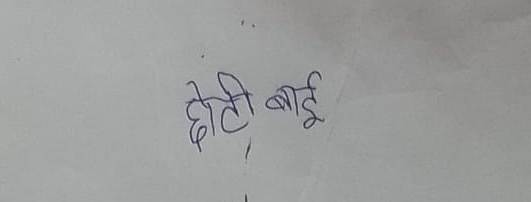 छोटी बाई